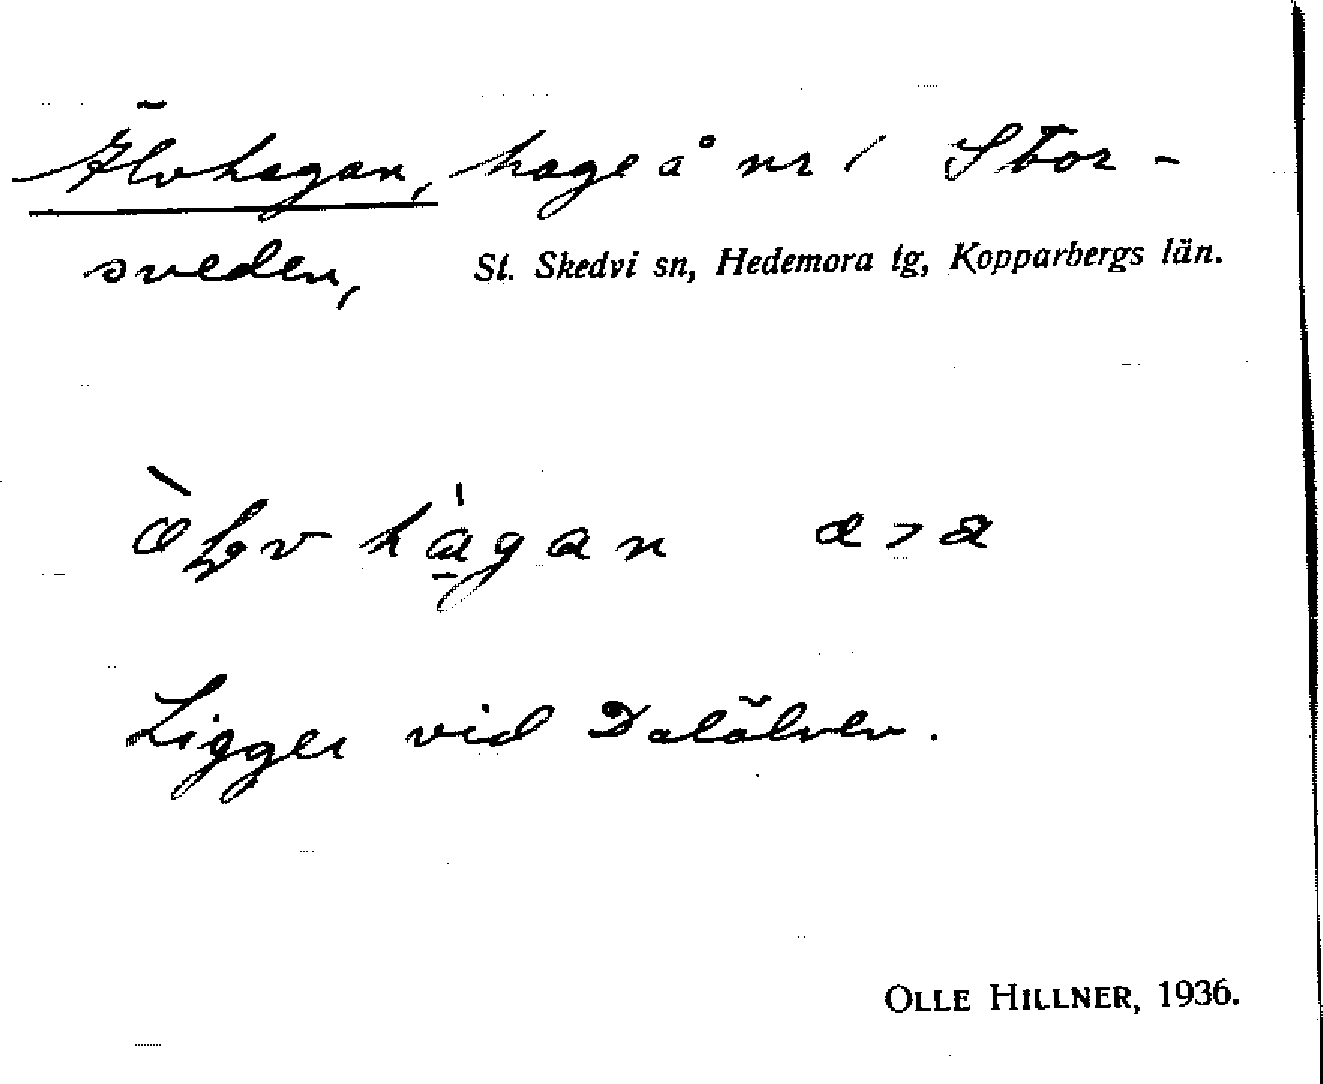 Älvhagan, hage å nr 1 Stor-
sveden, St. Skedvi sn, Hedemora tg, Kopparbergs län.
a > a
Ligger vid Dalälven.
OLLE HILLNER, 1936.